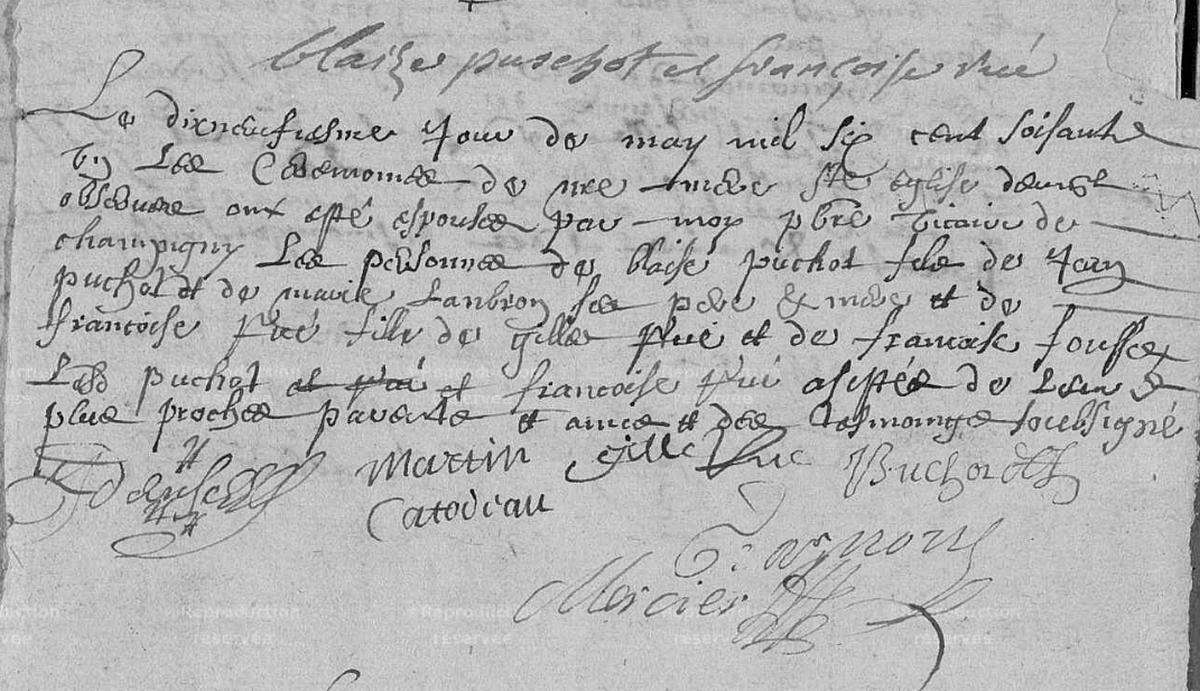 blaise puschot et françoise rué
Le dixneufiesme Jour de may mil six cent soisante
Les Ceremonies de nre mere ste eglise deument
observees ont esté espousés par moy pbre vicaire de
champigny Les personnes de blaise puchot fils de Jean
puchot et de marie Lanbron ses pere & mere et de
francoise rué fille de gille rué et de francoise fousse
Lesd puchot et francoise rué asistés de Leurs
plus proches parents et amis et des tesmoings soubsigné
Martin gille rué Buchordet
Catodeau
Mercier